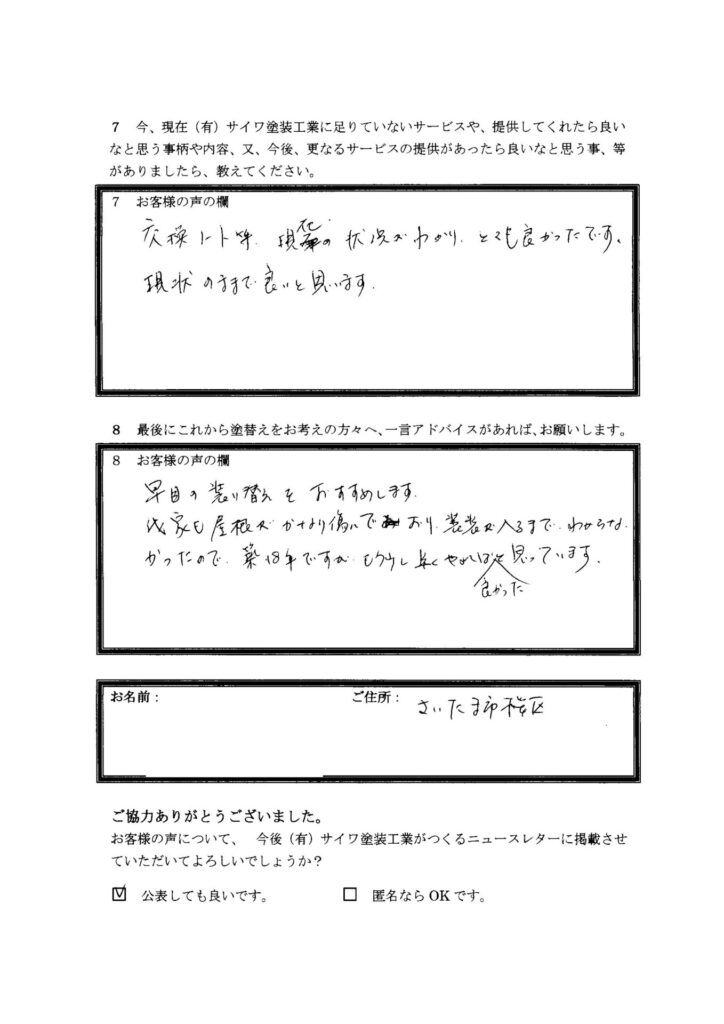 ７　今、現在（有）サイワ塗装工業に足りていないサービスや、提供してくれたら良い
なと思う事柄や内容、又、今後、更なるサービスの提供があったら良いなと思う事、等
がありましたら、教えてください。
７　お客様の声の欄
交換ノート等、現在の状況がわかり、とても良かったです。
現状のままで良いと思います。
８　最後にこれから塗替えをお考えの方々へ、一言アドバイスがあれば、お願いします。
８　お客様の声の欄
早目の装り替えをおすすめします。
我家も屋根がかなり傷んでおり、業者が入るまで、わからな
かったので、築18年ですが、もう少し早くやれば良かったと思っています。
お名前：
ご住所： さいたま市桜区
ご協力ありがとうございました。
お客様の声について、　今後（有）サイワ塗装工業がつくるニュースレターに掲載させ
ていただいてよろしいでしょうか？
☑　公表しても良いです。　□　匿名なら OK です。